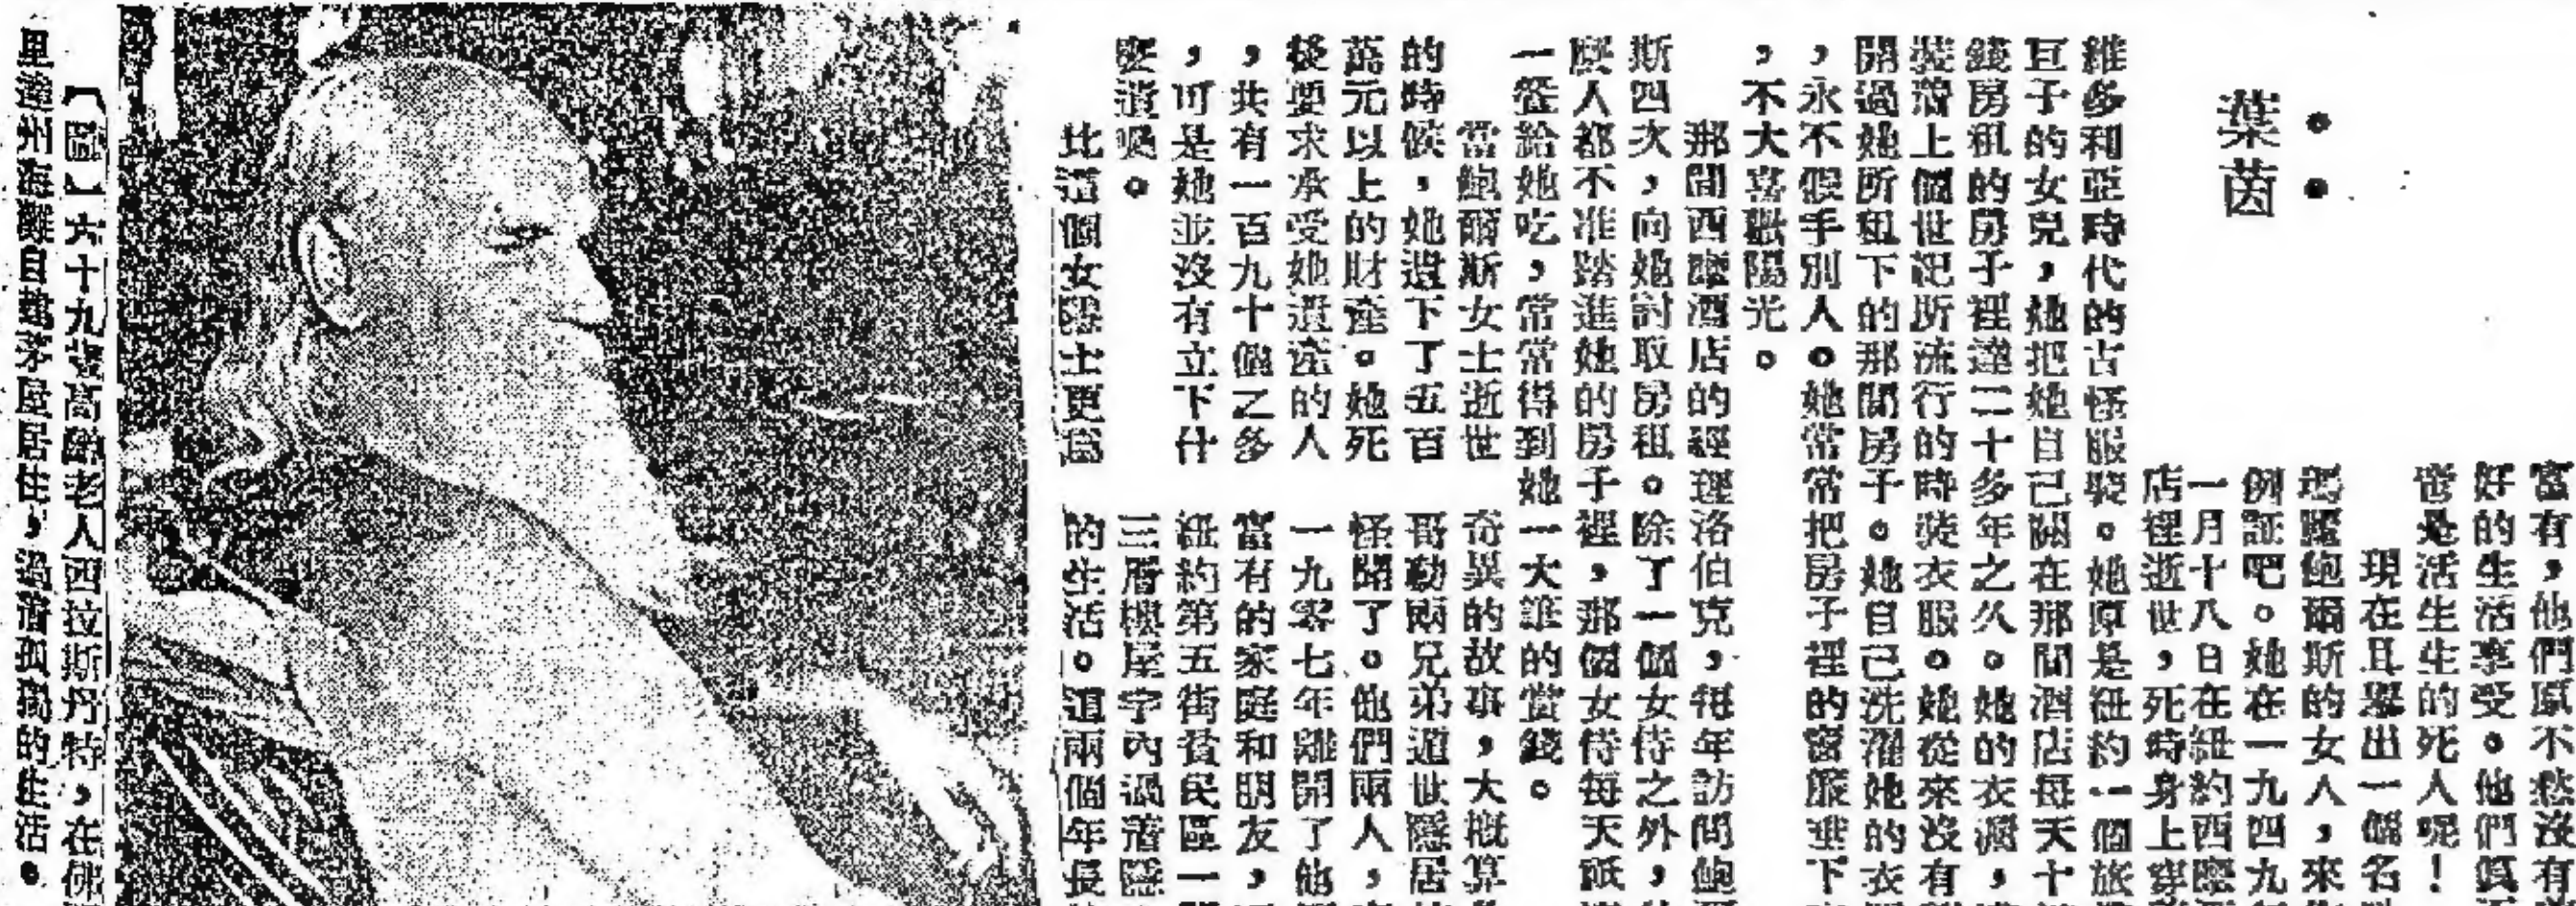 葉茵
富有,他們原不愁沒有
好的生活享受。他們
是活生生的死人呢!
現在且舉出一個名
鮑爾斯的女人,來
例証吧。她在一九四九
一月十八日在紐約西
店裡逝世,死時身上穿
維多利亞時代的古怪服裝。她原是紐約一個旅
巨子的女兒,她把她自己關在那間酒店每天十
錢房租的房子裡達二十多年之久。她的衣
裝着上個世記所流行的時裝衣服。她從來沒有
開過她所租下的那間房子。她自己洗濯她的衣
,永不假手別人。她常常把房子裡的窗簾垂下
,不大喜歡陽光。
那間西摩酒店的經理洛伯克,每年訪問鮑
斯四次,向她討取房租。除了一個女侍之外,
麽人都不准踏進她的房子裡,那個女侍每天祇
一餐給她吃,常常得到她一大筆的賞錢。
當鮑爾斯女士逝世
的時候,她遺下了五百
萬元以上的財產。她死
後要求承受她遺產的人
,共有一百九十個之多
,可是她並沒有立下什
麽遺囑。
比這個女隱士更爲
奇異的故事,大概算
哥勒兩兄弟遁世隱居
怪聞了。他們兩人,
一九零七年離開了他
富有的家庭和朋友,
紐約第五街貧民區一
三層樓屋宇內過着隱
的生活。這兩個年長
【圖】六十九歲高齡老人西拉斯丹特,在佛
里達州海灘自建茅屋居住,過着孤獨的生活。